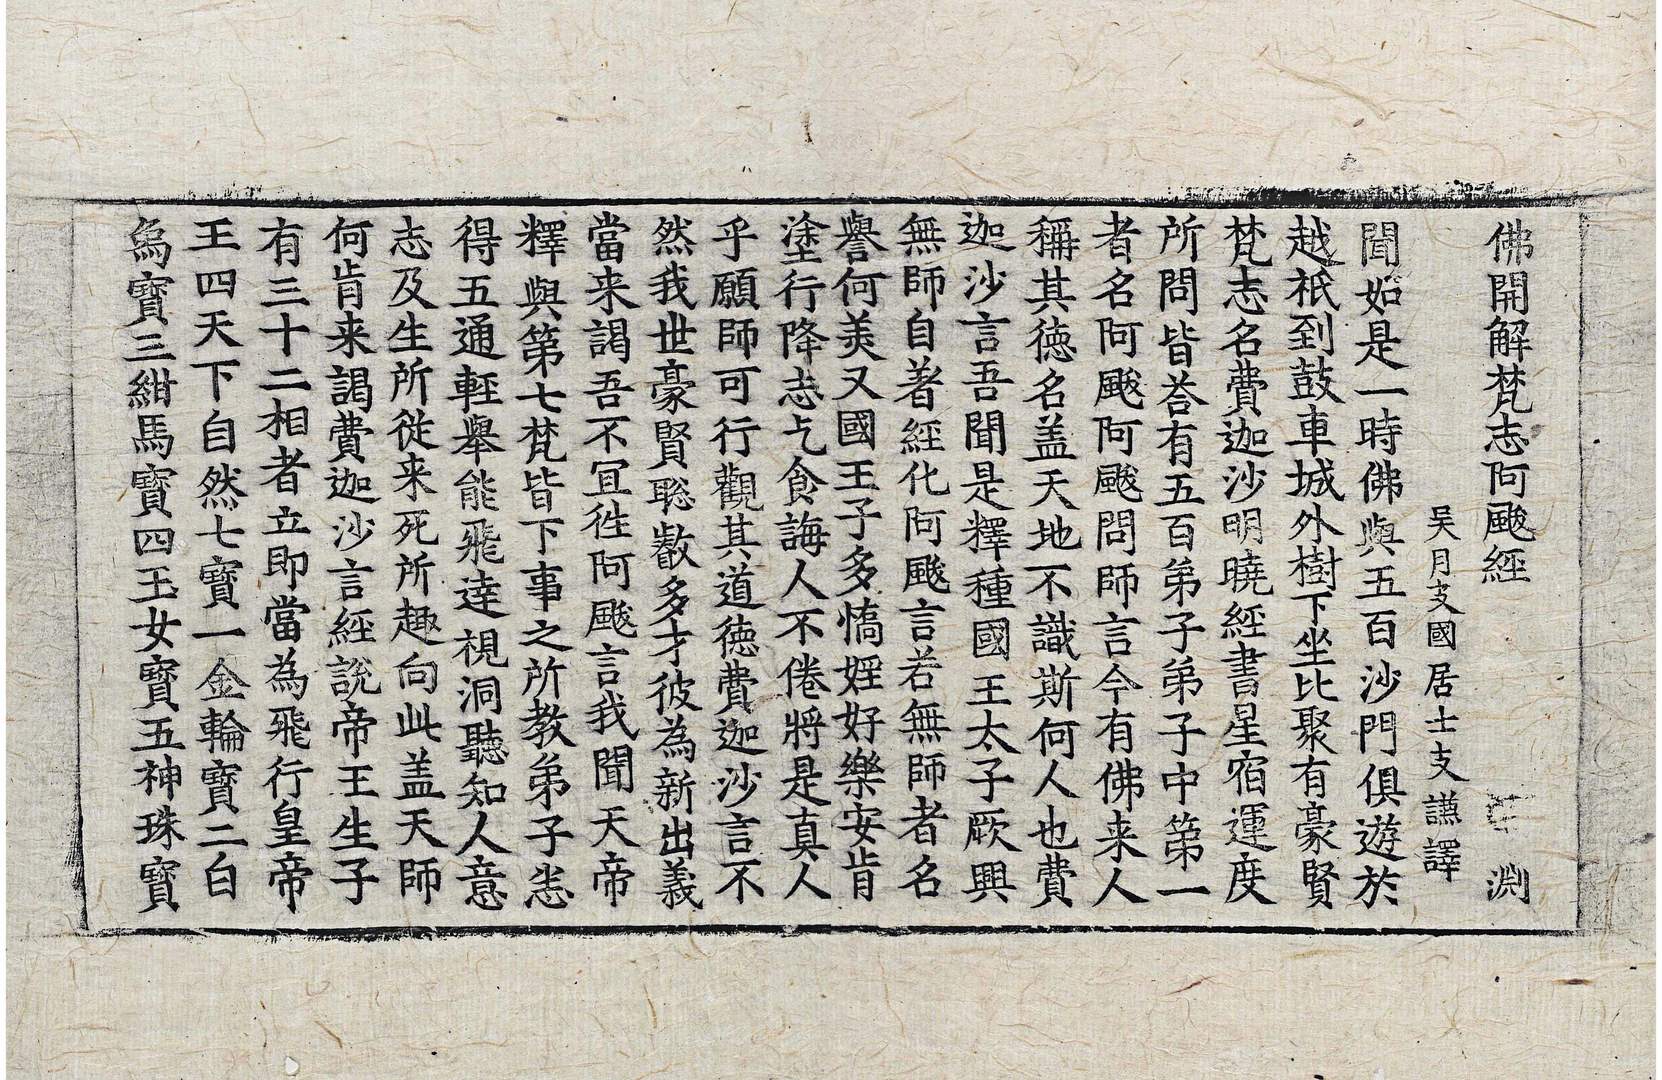 佛開解梵志阿颰經 淵
吳月支國居士支謙譯
聞如是一時佛與五百沙門俱遊於
越祇到鼓車城外樹下坐比聚有豪賢
梵志名費迦沙明曉經書星宿運度
所問皆荅有五百弟子弟子中第一
者名阿颰阿颰問師言今有佛来人
稱其德名盖天地不識斯何人也費
迦沙言吾聞是釋種國王太子厥興
無師自著經化阿颰言若無師者名
譽何美又國王子多憍婬好樂安肯
塗行降志乞食誨人不倦將是真人
乎願師可行觀其道德費迦沙言不
然我世豪賢聡叡多才彼為新出義
當来謁吾不冝徃阿颰言我聞天帝
釋與第七梵皆下事之所教弟子悉
得五通輕舉能飛達視洞聽知人意
志及生所從来死所趣向此盖天師
何肯来謁費迦沙言經說帝王生子
有三十二相者立即當為飛行皇帝
王四天下自然七寶一金輪寶二白
爲寶三紺馬寶四玉女寶五神珠寶